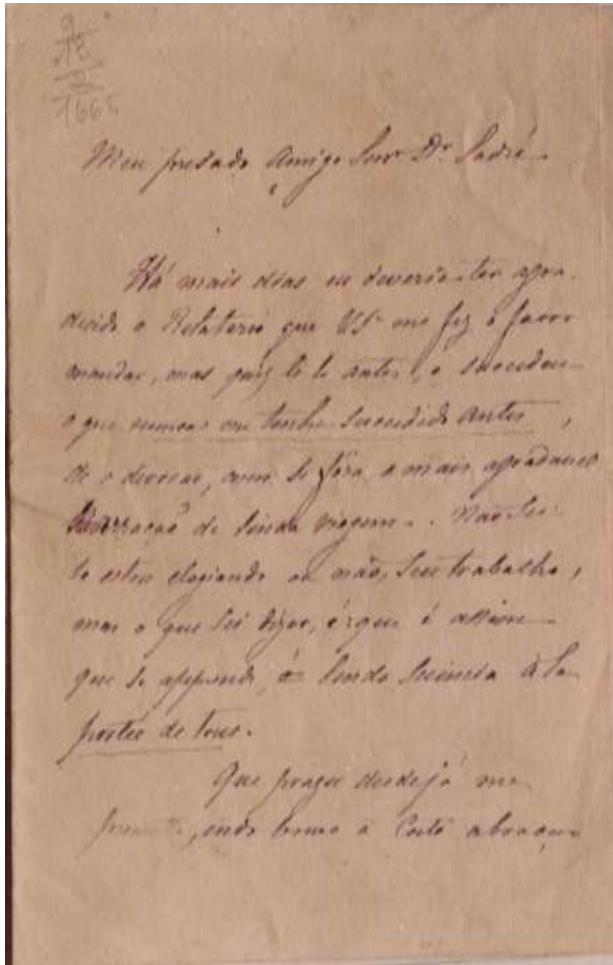 Meu presado Amigo Snr. Dr.
Há mais dias eu deveria ter agra-
decido o Relatorio que VSª me fez o favor
mandar, mas quiz le-lo antes, e succedeu
o que nunca me tenha succedido antes,
de o devorar, como se fora a mais agradavel
narração de linda viagem. Não sei
se estou elogiando ou não, seu trabalho,
mas o que sei dizer, é que é assim
que se apprende, é sciencia à la
portée de tous.
Que prazer desde já me
quando torne à Corte abraçar